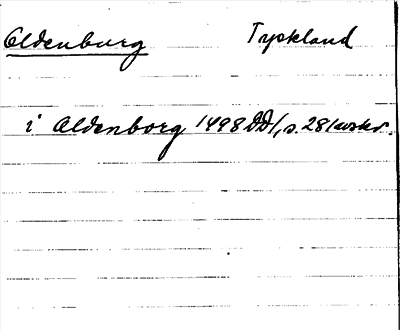 Oldenburg Tyskland
i Oldenborg 1498 DD1, s. 281 avskr.